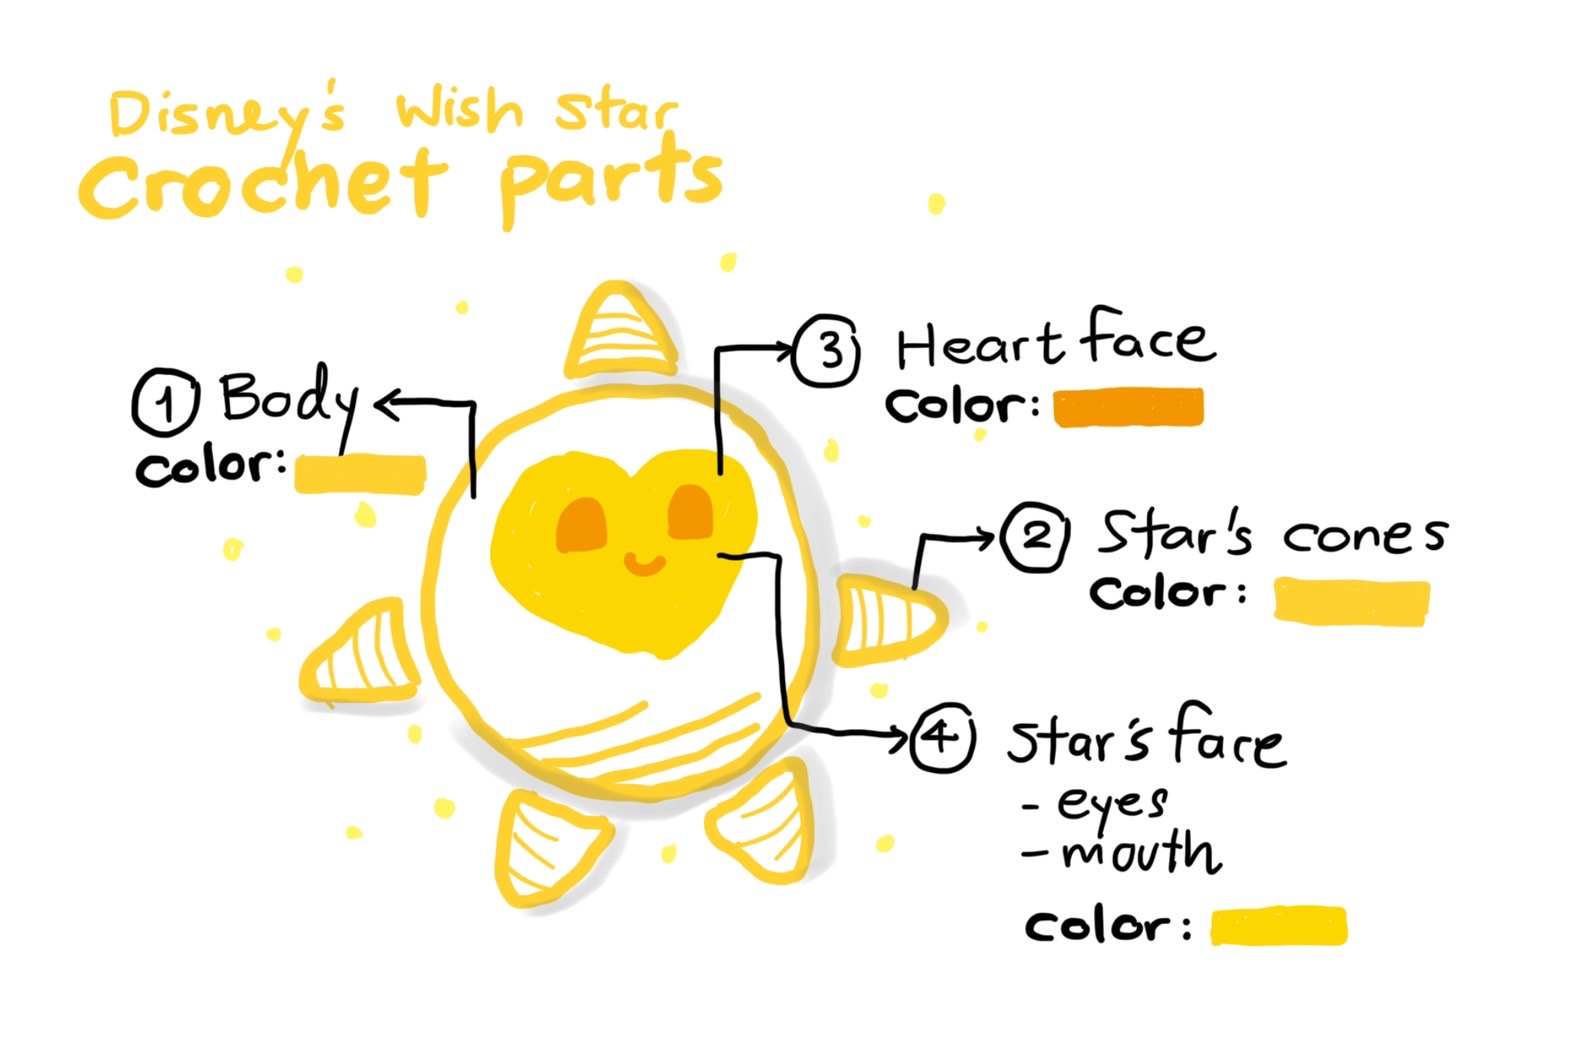 Disney's Wish Star
Crochet parts
1 Body
color:
3 Heart face
color:
2 Star's cones
color:
4 Star's face
- eyes
- mouth
color: